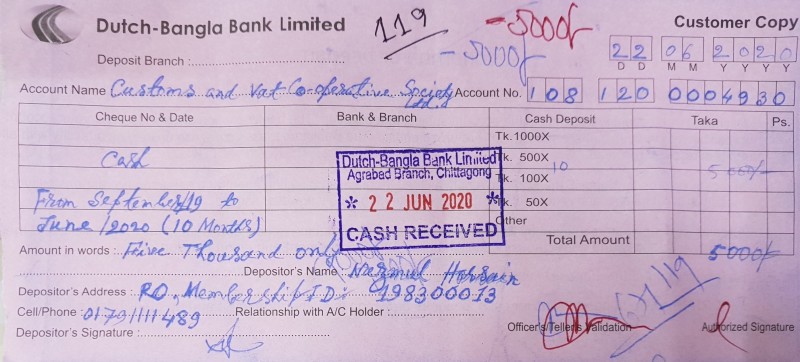 Dutch-Bangla Bank Limited
119
-5000/-
-5000/-
Customer Copy
Deposit Branch :
22 06 2020
D D M M Y Y Y Y
Account Name Customs and Vat Co-operative Society Ltd. Account No. 108 120 0004930
Cheque No & Date Bank & Branch Cash Deposit Taka Ps.
Tk. 1000X
Cash
Tk. 500X 10 5000/-
Tk. 100X
Tk. 50X
Other
From September/19 to
June/2020 (10 Months)
Dutch-Bangla Bank Limited
Agrabad Branch, Chittagong
* 22 JUN 2020 *
CASH RECEIVED
Total Amount 5000/-
Amount in words : Five Thousand only
Depositor's Name : Nazmul Hossain
Depositor's Address : RO, Membership ID: 198300013
Cell/Phone : 01791111489 Relationship with A/C Holder :
Depositor's Signature :
Officer's/Teller's Validation
Authorized Signature